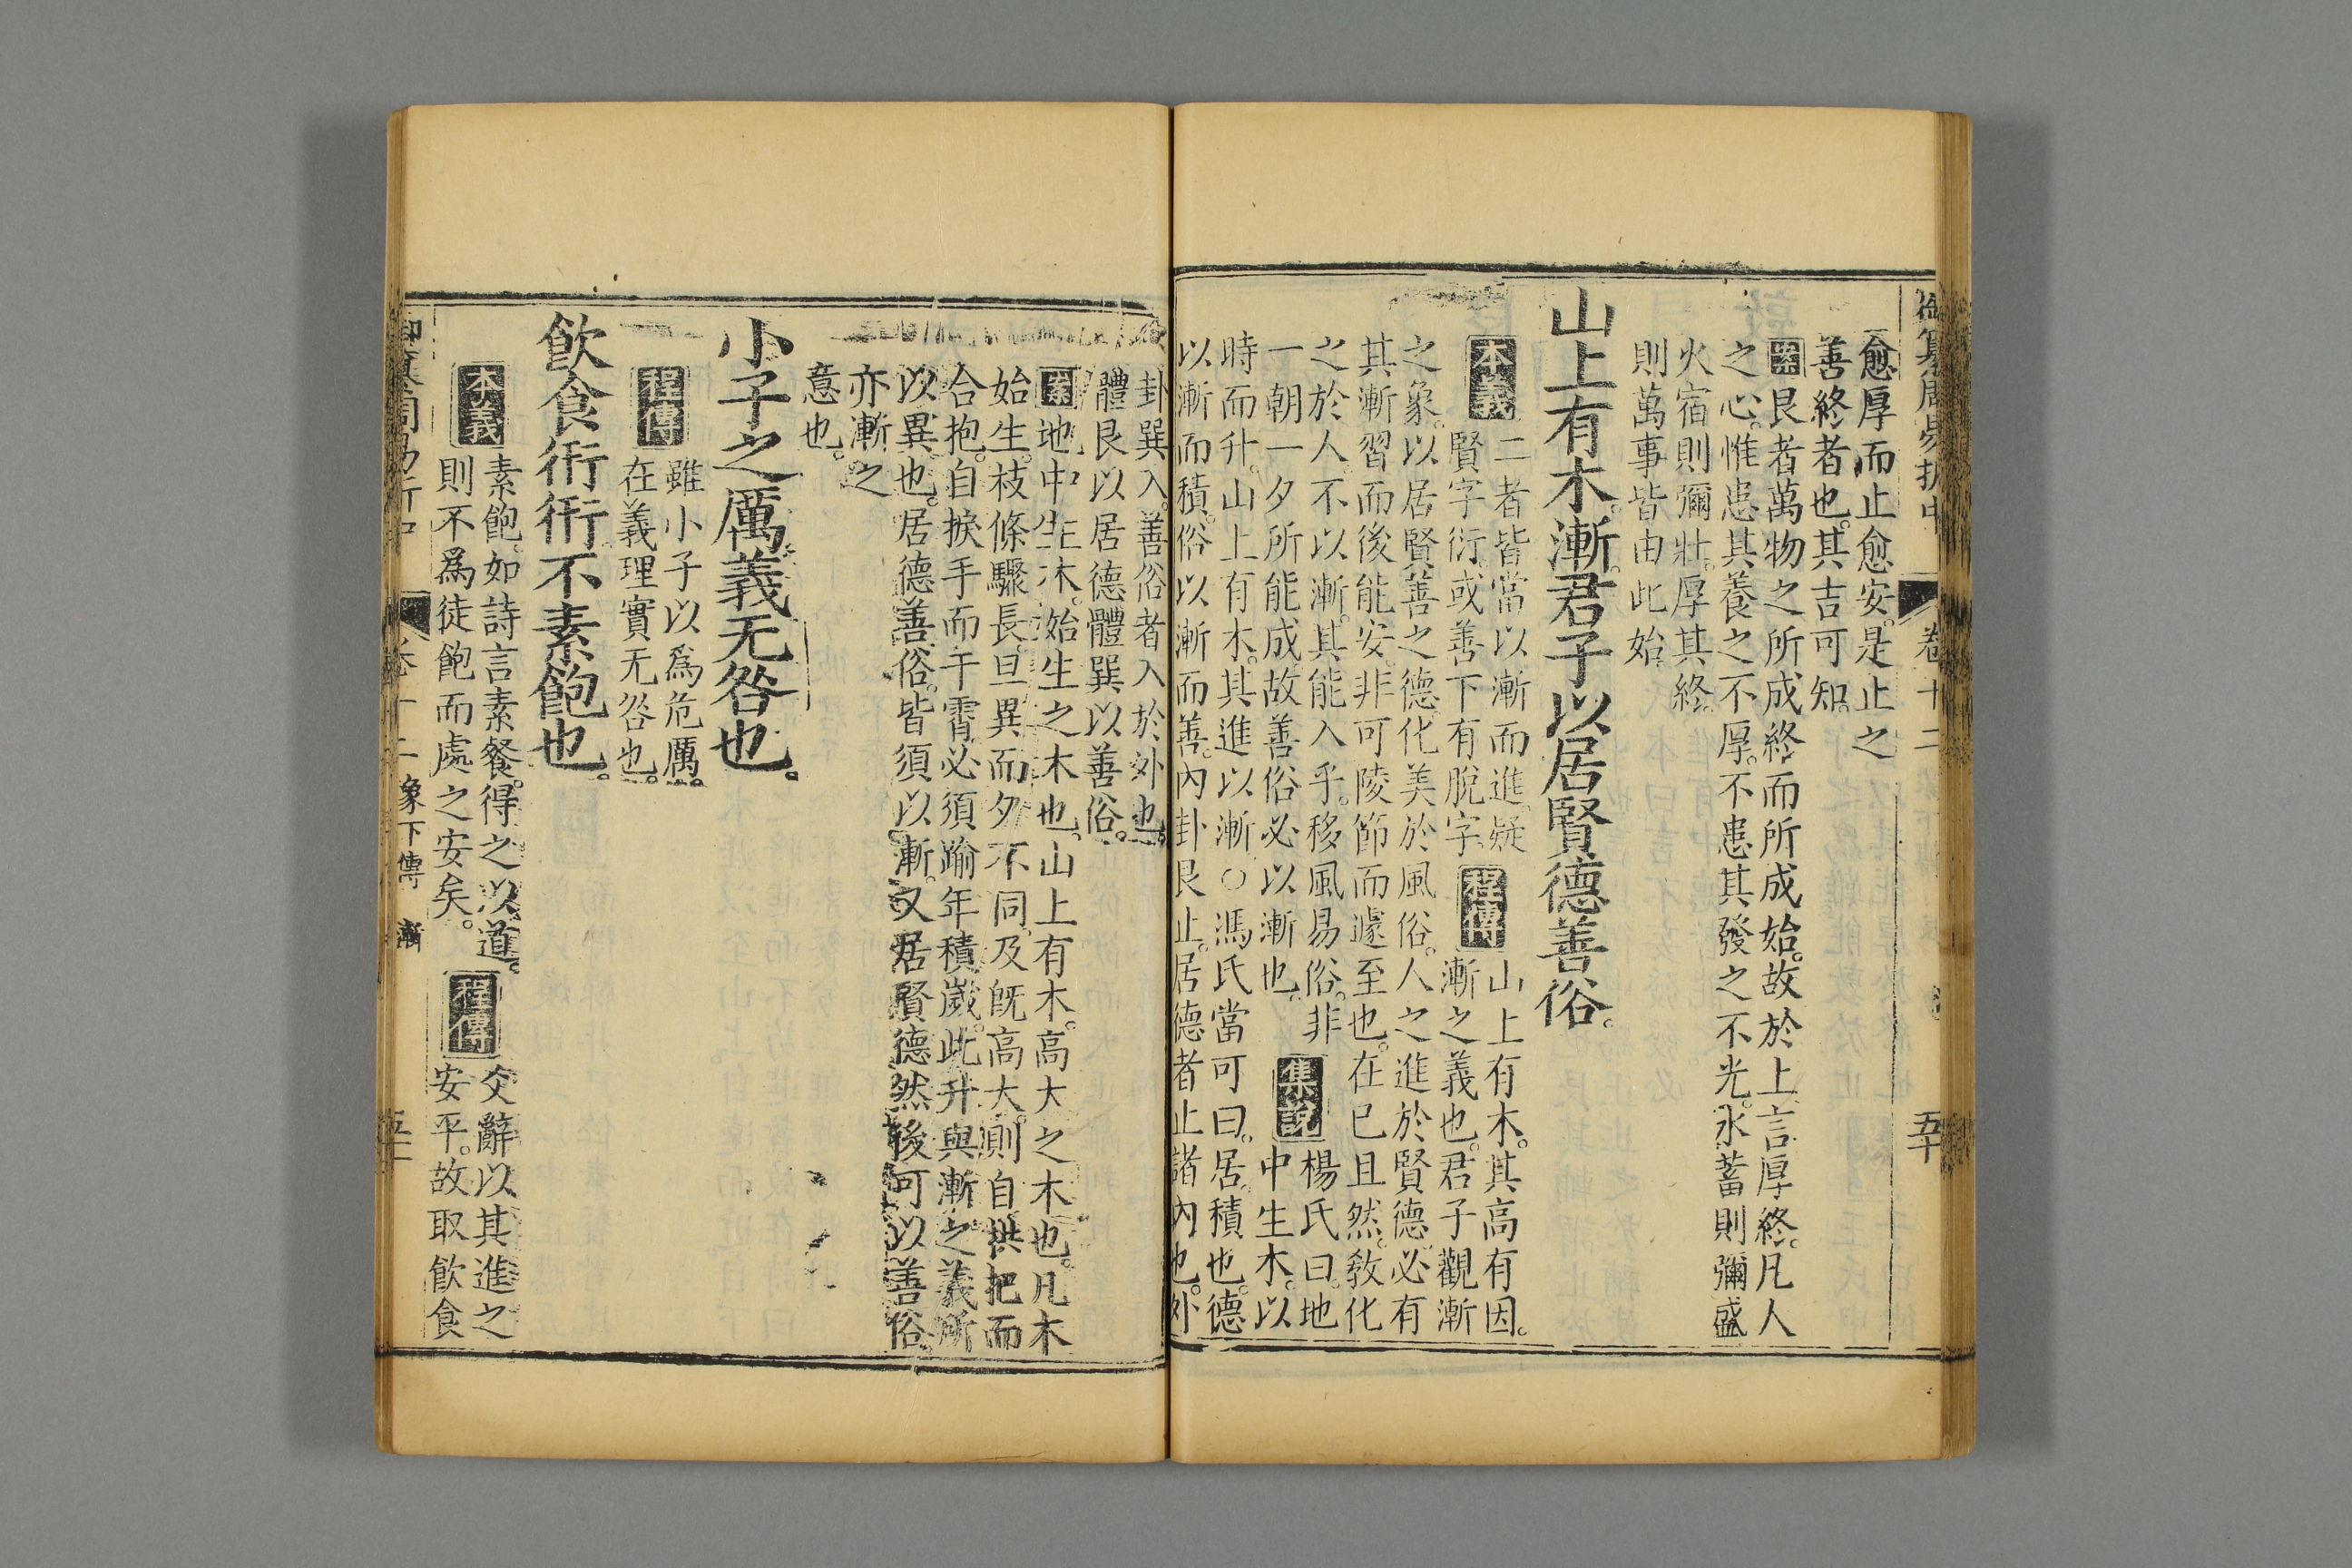 御纂周易折中 卷十二 五十
愈厚而止愈安是止之
善終者也其吉可知
案艮者萬物之所成終而所成始故於上言厚終凡人
之心惟患其養之不厚不患其發之不光水蓄則彌盛
火宿則彌壯厚其終
則萬事皆由此始
山上有木漸君子以居賢德善俗
本義
二者皆當以漸而進疑
賢字衍或善下有脫字
程傳
山上有木其高有因
漸之義也君子觀漸
之象以居賢善之德化美於風俗人之進於賢德必有
其漸習而後能安非可陵節而遽至也在己且然敎化
之於人不以漸其能入乎移風易俗非
一朝一夕所能成故善俗必以漸也
集說
楊氏曰地
中生木以
時而升山上有木其進以漸○馮氏當可曰居積也德
以漸而積俗以漸而善內卦艮止居德者止諸內也外
卦巽入善俗者入於外也
體艮以居德體巽以善俗
案地中生木始生之木也山上有木高大之木也凡木
始生枝條驟長旦異而夕不同及旣高大則自拱把而
合抱自捩手而干霄必須踰年積歲此升與漸之義所
以異也居德善俗皆須以漸又居賢德然後可以善俗
亦漸之
意也
小子之厲義无咎也
程傳
雖小子以爲危厲
在義理實无咎也
飲食衎衎不素飽也
本義
素飽如詩言素餐得之以道
則不爲徒飽而處之安矣
程傳
爻辭以其進之
安平故取飲食
御纂周易折中 卷十二 象下傳 漸 五十一